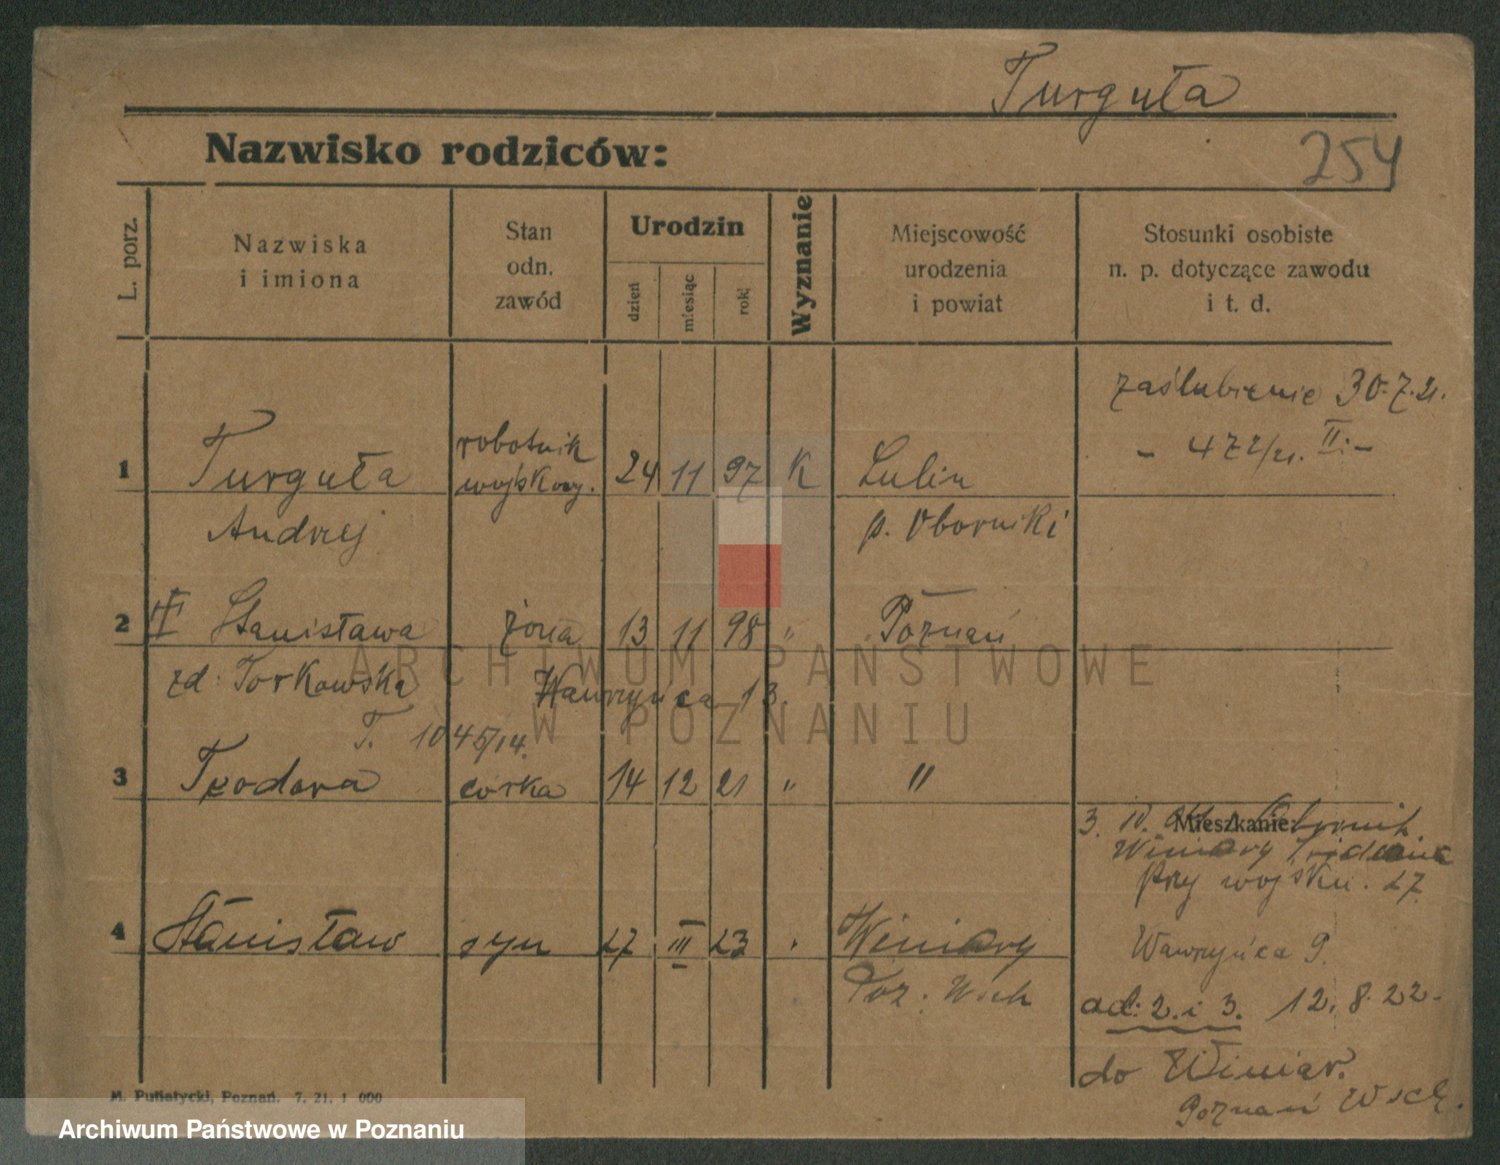 Turguła
Nazwisko rodziców:
254
L. porz.
Nazwiska
i imiona
Stan
odn.
zawód
Urodzin
dzień
miesiąc
rok
Wyznanie
Miejscowość
urodzenia
i powiat
Stosunki osobiste
n. p. dotyczące zawodu
i t. d.
zaślubienie 30.7.21.
- 472/21. II. -
1 Turguła robotnik wojskowy. 24 11 97 K Lulin
Andrzej p. Oborniki
2 III Stanisława żona 13 11 98 " Poznań
zd: Torkowska Wawrzyńca 13.
T. 1045/14.
3 Teodora córka 14 12 21 " "
3. IV. Mieszkanie:
Winiary
przy wojsku. 27
4 Stanisław syn 27 III 23 " Winiary
Poz. Wsch
Wawrzyńca 9.
ad: 2. i 3. 12. 8. 22.
do Winiar.
Poznań Wsch.
M. Putiatycki, Poznań. 7. 21. 1 000
ARCHIWUM PAŃSTWOWE
W POZNANIU
Archiwum Państwowe w Poznaniu